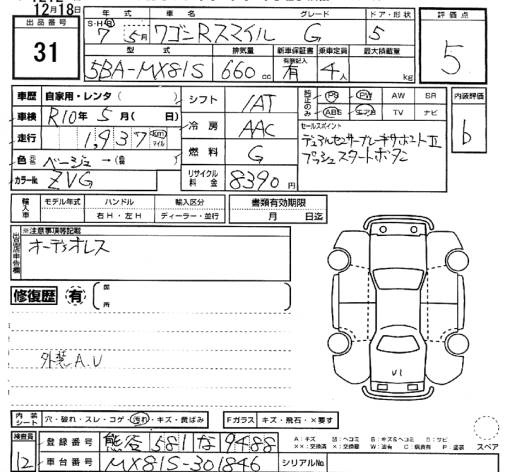 12月18日
出品番号
31
年式 車名 グレード ドア・形状
S・H・R 7年5月 ワゴンRスマイル G 5
型式 排気量 新車保証書 乗車定員 最大積載量
5BA-MX81S 660cc 有 4人 kg
評価点
5
車歴 自家用・レンタ( )
車検 R10年5月( 日)
走行 1,937 km マイル
色 ベージュ→(色 )
カラーNo. ZVG
シフト IAT
冷房 AAC
燃料 G
リサイクル料金 8390円
純正のみ PS PW AW SR
ABS エアB TV ナビ
セールスポイント
デュアルセンサーブレーキサポートⅡ
プッシュスタートボタン
内装評価
b
輸入車 モデル年式 ハンドル 輸入区分
年 右H・左H ディーラー・並行
書類有効期限
月 日迄
出品店申告欄
※注意事項等記載
オーディオレス
修復歴 有 箇所
外装A.U
U1
内装シート 穴・破れ・スレ・コゲ・汚れ・キズ・黄ばみ
Fガラス キズ・飛石・×要す
検査員
12
登録番号 熊谷 581 な 9488
車台番号 MX81S-301846
シリアルNo.
A:キズ U:ヘコミ B:キズ&ヘコミ S:サビ
XX:交換済 X:要交換 W:波有 C:腐食有 P:塗装
スペア